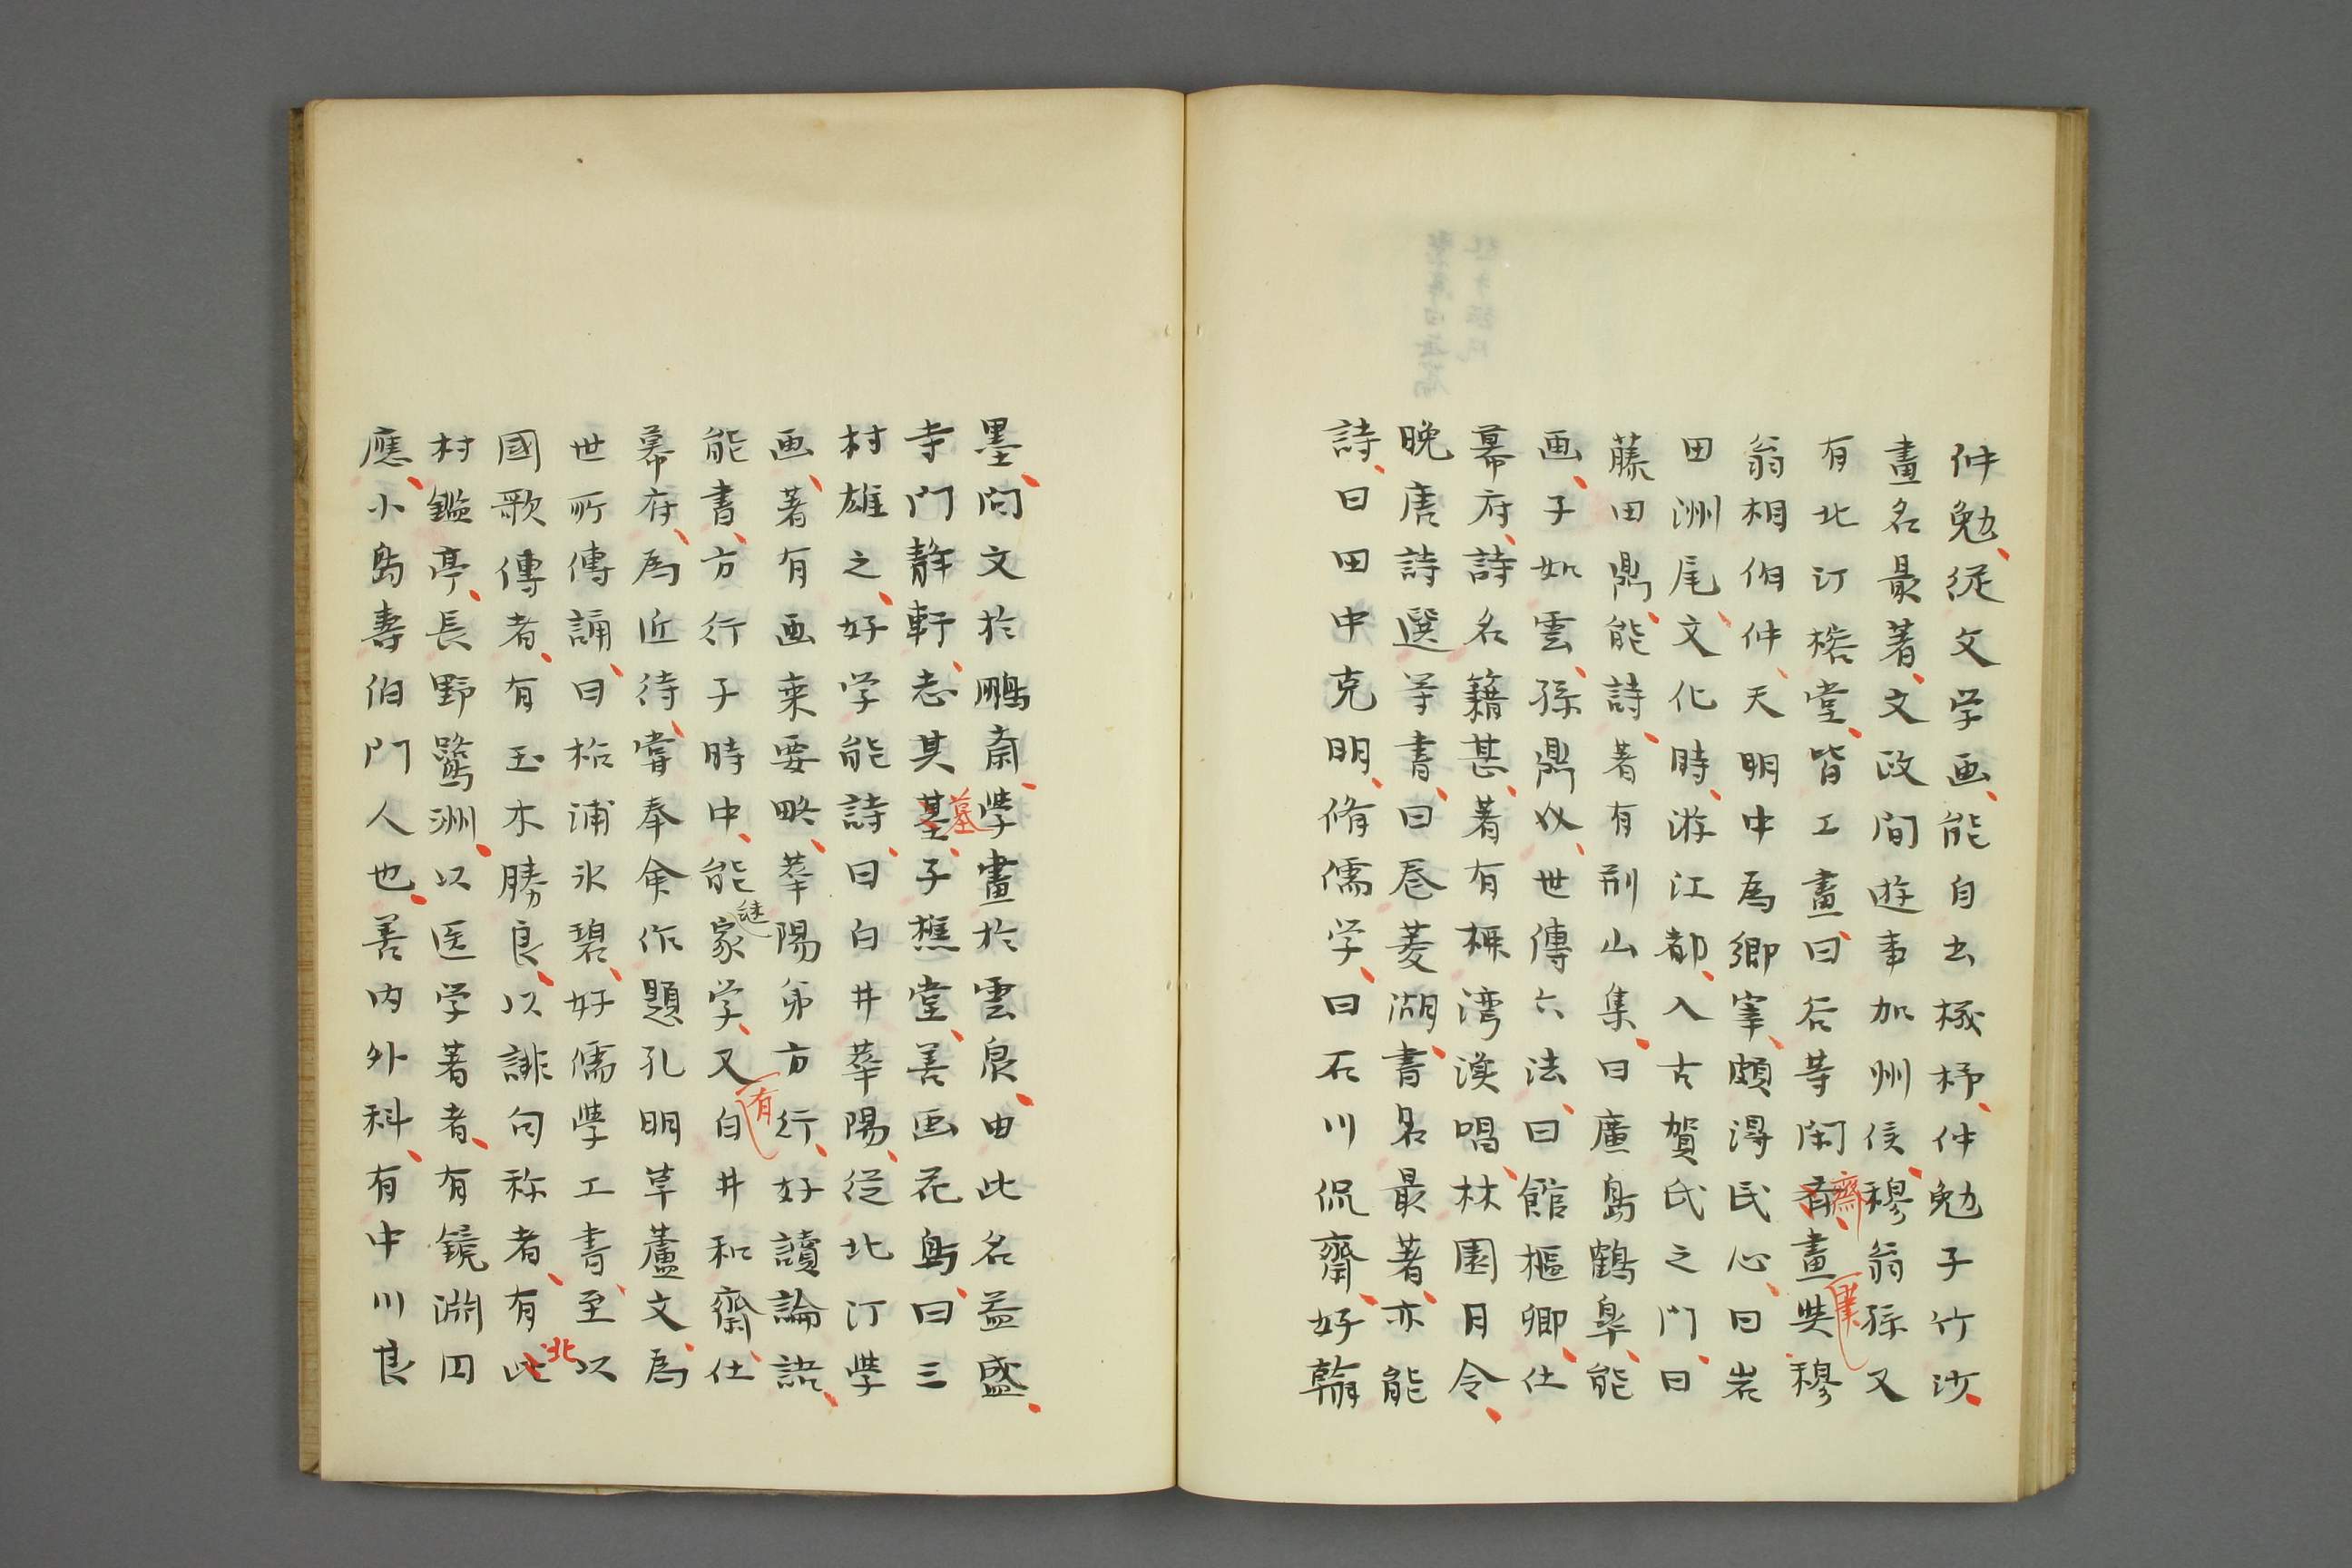 仲勉、従文学画、能自出機杼、仲勉子竹沙、
畫名最著、文政間遊事加州侯、穆翁孫又
有北汀榕堂、皆工畫、曰谷等閑齋、畫與穆
翁相伯仲、天明中為郷宰、頗得民心、曰岩
田洲尾、文化時、游江都、入古賀氏之門、曰
藤田鼎、能詩、著有荊山集、曰廣島鶴皐、能
画、子如雲、孫鼎以、世傳六法、曰館樞卿、仕
幕府、詩名籍甚、著有 湾漁唱、林園月令、
晩唐詩選等書、曰巻菱湖、書名最著、亦能
詩、曰田中克明、脩儒学、曰石川侃齋、好翰
墨、問文於鵬斎、學畫於雲泉、由此名益盛、
寺門静軒、志其墓、子樵堂、善画花鳥、曰三
村雄之、好学能詩、曰白井華陽、從北汀學
画、著有画乗要略、華陽弟方行、好讀論語、
能書、方行子時中、能継家学、又有白井和齋、仕
幕府、為近侍、嘗奉命作題孔明草蘆文、為
世所傳誦、曰柗浦氷碧、好儒學工書、至以
國歌傳者、有玉木勝良、以誹句称者、有北
村鑑亭、長野鷺洲、以医学著者、有鏡渊冏
應、小島壽伯門人也、善内外科、有中川良